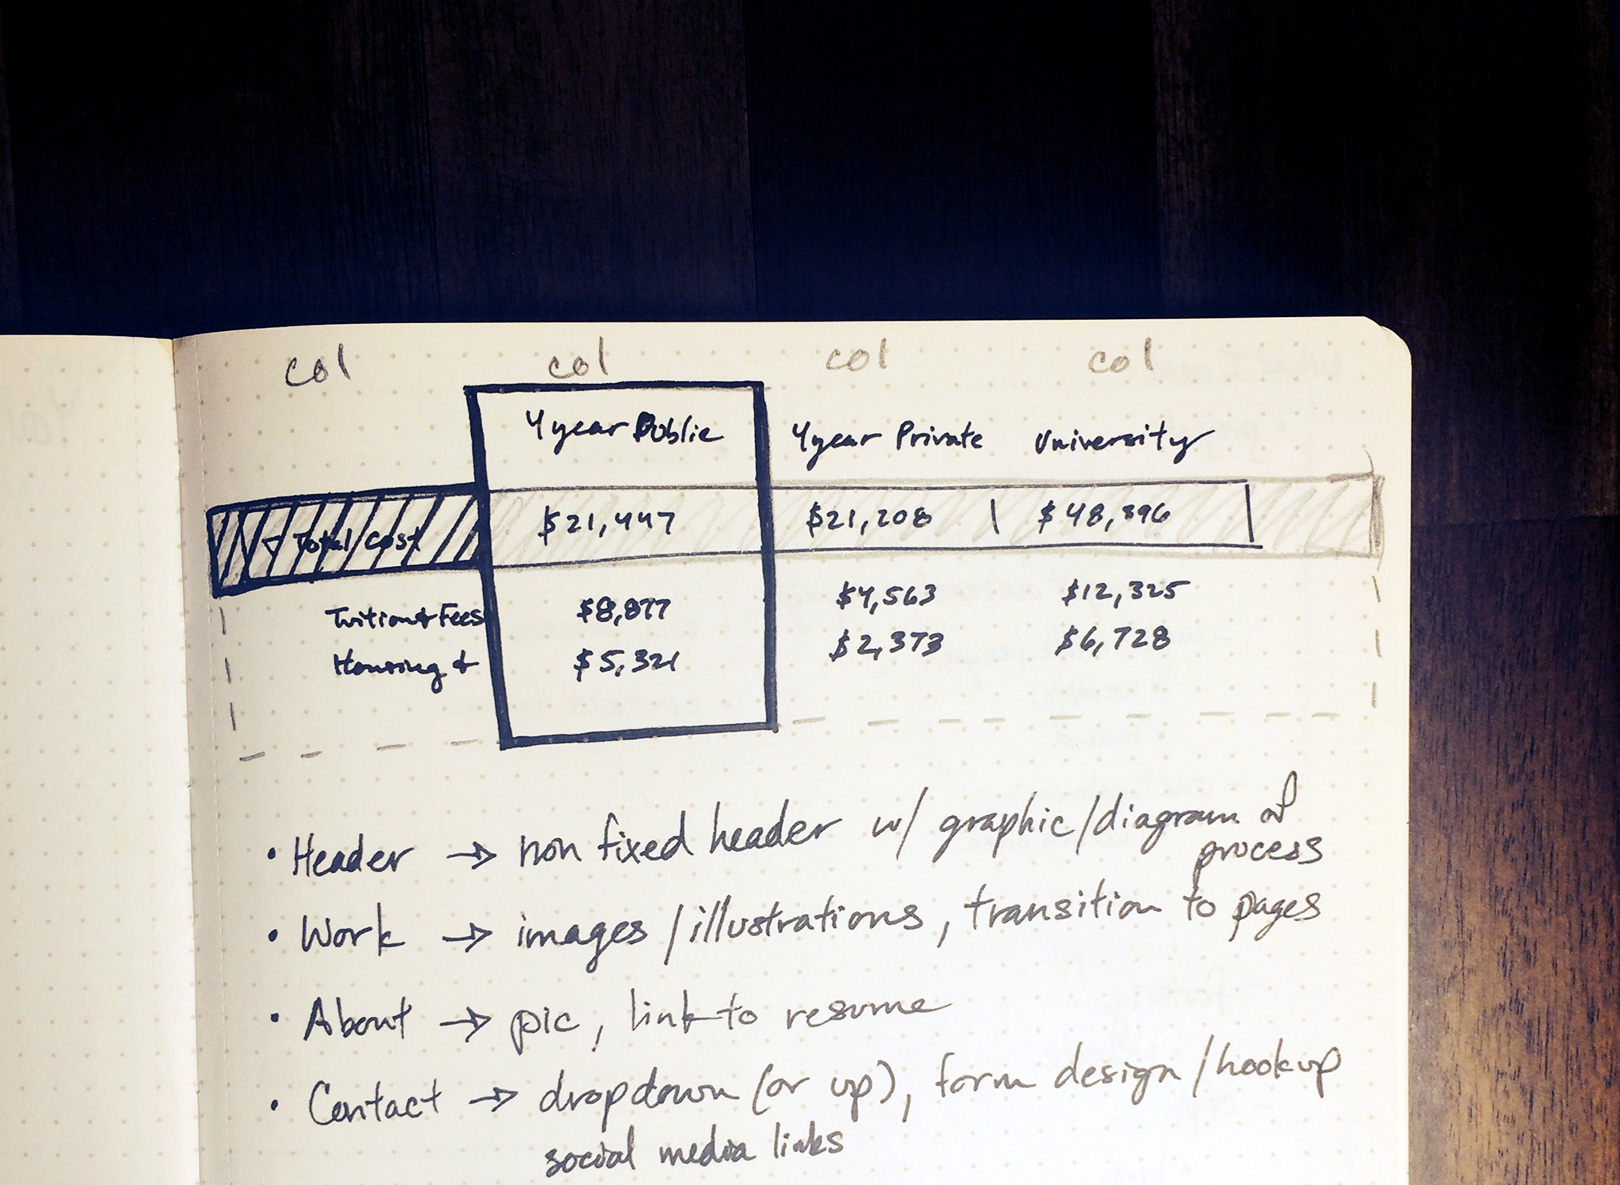 col col col col
4 year Public 4 year Private University
Total cost $21,447 $21,208 $48,896
Tuition & Fees $8,877 $4,563 $12,325
Housing & $5,321 $2,373 $6,728
• Header → non fixed header w/ graphic/diagram of
process
• Work → images/illustrations, transition to pages
• About → pic, link to resume
• Contact → dropdown (or up), form design/hookup
social media links